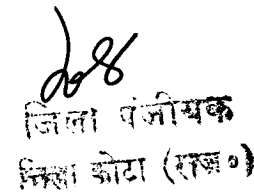 जिला पंजीयक
जिला कोटा (राज०)